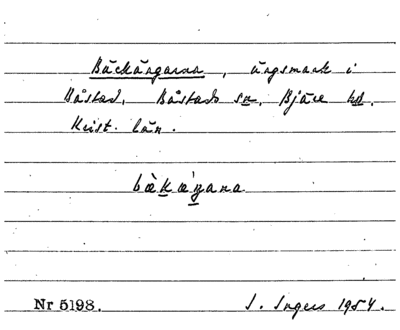 Bäckängarna, ängsmark i
Båstad, Båstads sn. Bjäre hd.
Krist. län.
bækæŋana
Nr 5198. I. Ingers 1954.